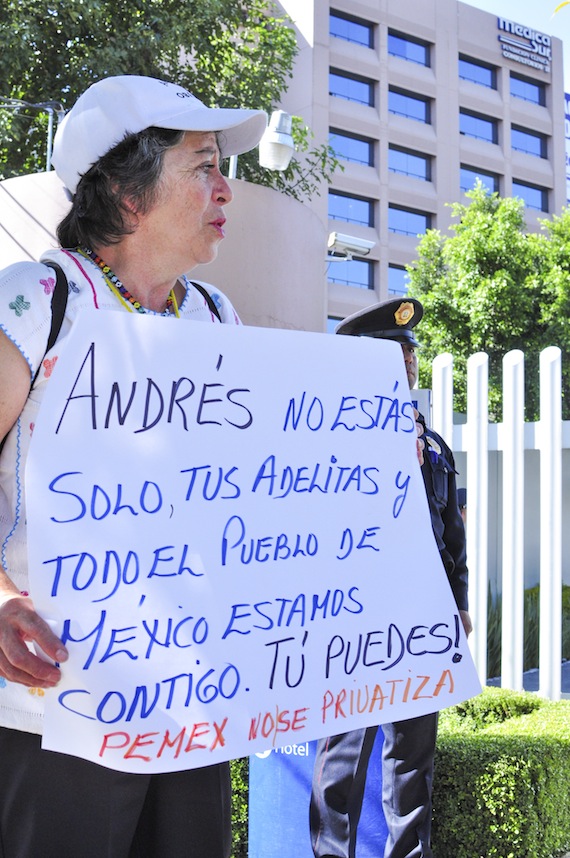 medica
Sur
FUNDACIÓN CLÍNICA
ANDRÉS NO ESTÁS
SOLO, TUS ADELITAS Y
TODO EL PUEBLO DE
MÉXICO ESTAMOS
CONTIGO. TÚ PUEDES!
PEMEX NO SE PRIVATIZA
hotel